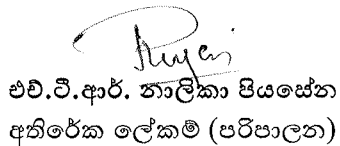 එච්.ටී.ආර්. නාලිකා පියසේන
අතිරේක ලේකම් (පරිපාලන)